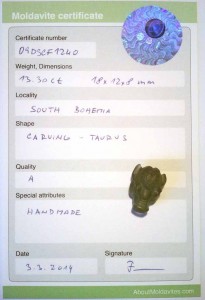 Moldavite certificate
Certificate number
09D3CF1240
Weight, Dimensions
13.30ct 18x12x8 mm
Locality
SOUTH BOHEMIA
Shape
CARVING - TAURUS
Quality
A
Special attributes
HANDMADE
Date
Signature
3.3.2014
AboutMoldavites.com